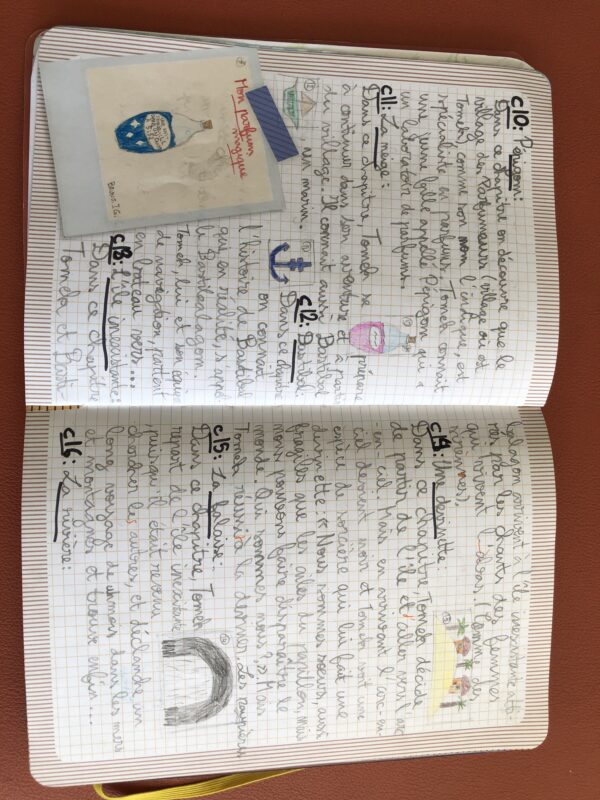 c10: Périgoni:
Dans ce chapitre on découvre que le
village des Parfumeurs (village où est
Tomek) comme son nom l'indique, est
spécialiste en parfums. Tomek connaît
une jeune fille appelé Pépigom qui a
un laboratoire de parfums.
c11: La neige:
Dans ce chapitre, Tomek se prépare
à continuer dans son aventure et a partir
du village. Il connait aussi Bastibal
un marin.
c12: Bastibal:
Dans ce chapitre
on connait
l'histoire de Bastibal
qui en réalité, s'appel
le Bastibalagom
Tomek, lui et son équipe
de navigation, partent
en bateau vers...
c13: L'île inexistante:
Dans ce chapitre
Tomek et Basti-
Mon parfum
magique
balagom arrivent à l'île inexistante atti
rés par les chants des femmes
qui vivent là-bas. (comme des
sirènes).
c14: Une devinette:
Dans ce chapitre, Tomek décide
de partir de l'île et aller vers l'arc
-en-ciel. Mais en arrivant l'arc-en-
ciel devient noir et Tomek voit une
espèce de sorcière qui lui fait une
devinette « Nous sommes sœurs, aussi
fragiles que les ailes du papillon, mais
nous pouvons faire disparaître le
monde. Qui sommes nous? » Mais
Tomek réussi a la deviner. Les paupières
c15: La falaise:
Dans ce chapitre, Tomek
repart de l'île inexistante
puisqu'il était revenu
chercher les autres, et déclanche un
long voyage de mois dans les mers
et montagnes et trouve enfin...
c16: La rivière: